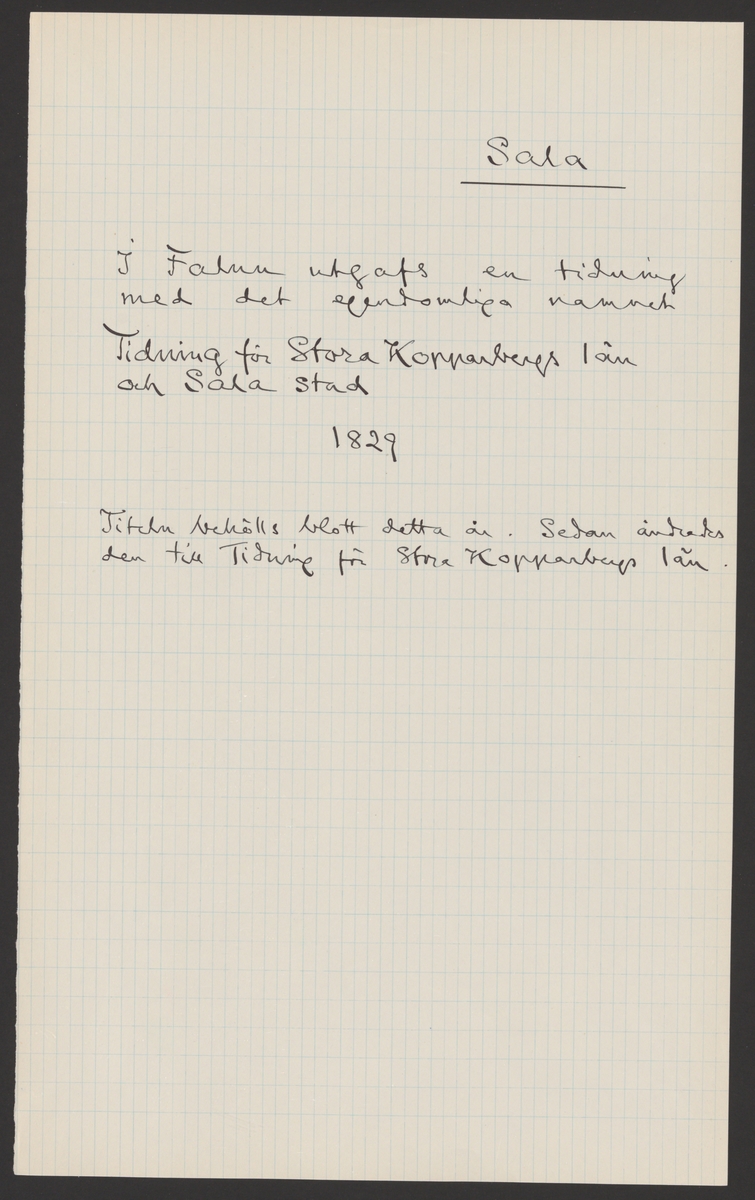 Sala
I Falun utgafs en tidning
med det egendomliga namnet
Tidning för Stora Kopparbergs län
och Sala stad
1829
Titeln behölls blott detta år. Sedan ändrades
den till Tidning för Stora Kopparbergs län.